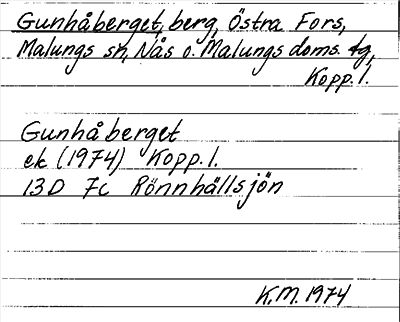 Gunhåberget, berg, Östra Fors,
Malungs sn, Nås o. Malungs doms. tg,
Kopp. l.
Gunhåberget
ek (1974) Kopp. l.
13D 7c Rönnhällsjön
K.M. 1974